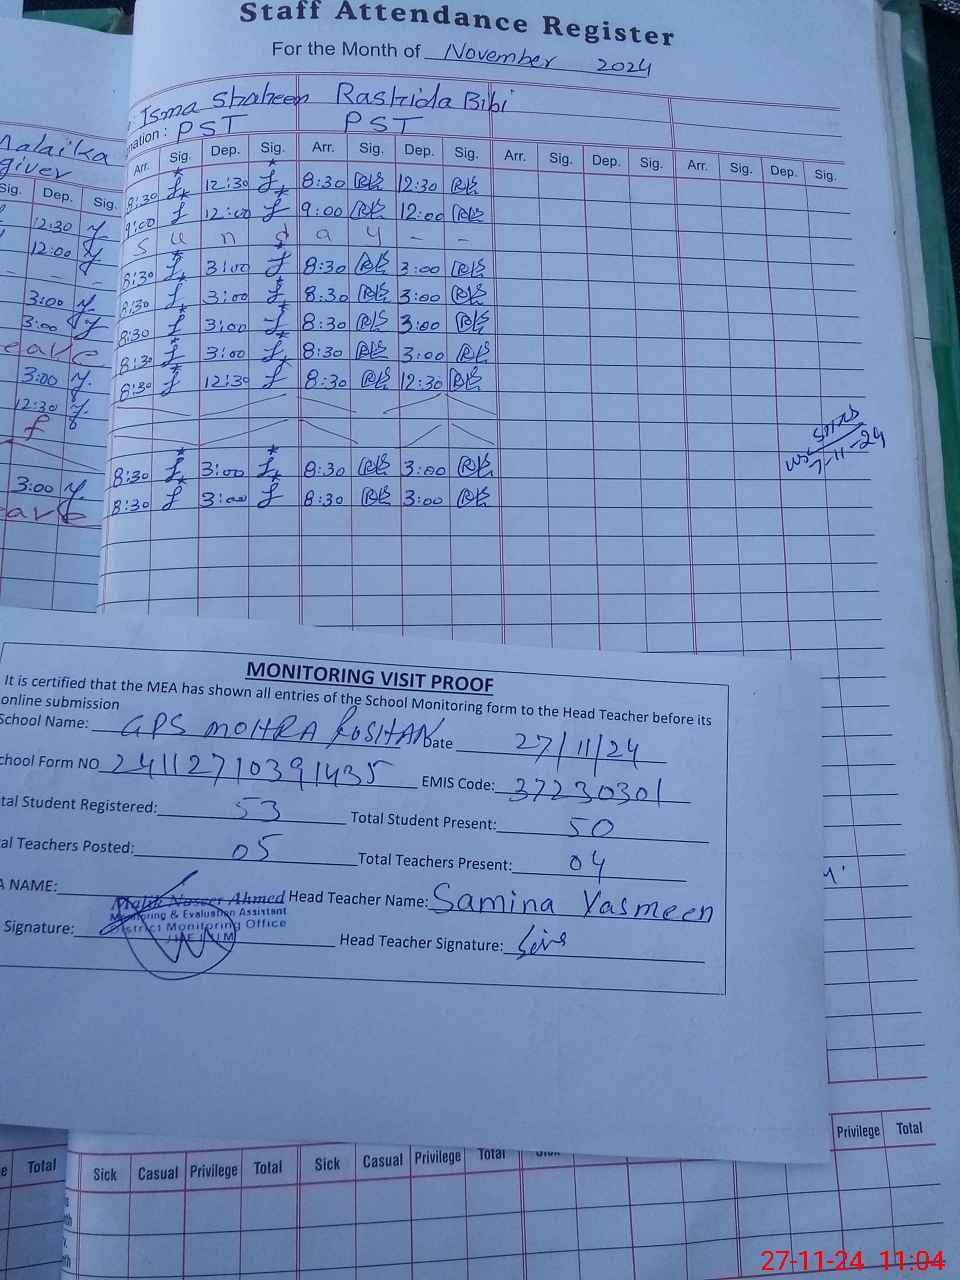 Staff Attendance Register
For the Month of November 2024
Isma Shaheen Rashida Bibi
nation : PST PST
Malaika
giver
Sig. Dep. Sig. Arr. Sig. Dep. Sig. Arr. Sig. Dep. Sig. Arr. Sig. Dep. Sig. Arr. Sig. Dep. Sig.
12:30 8:30 12:30 8:30 12:30
12:00 9:00 12:00 9:00 12:00
- - - S u n d a y - -
3:00 8:30 3:00 8:30 3:00
3:00 8:30 3:00 8:30 3:00
eave 8:30 3:00 8:30 3:00
3:00 8:30 3:00 8:30 3:00
12:30 8:30 12:30 8:30 12:30
7-11-24
8:30 3:00 8:30 3:00
3:00 8:30 3:00 8:30 3:00
eave
MONITORING VISIT PROOF
It is certified that the MEA has shown all entries of the School Monitoring form to the Head Teacher before its
online submission
School Name: GPS MOHRA ROSHAN Date 27/11/24
chool Form NO 24112710391435 EMIS Code: 37230301
tal Student Registered: 53 Total Student Present: 50
al Teachers Posted: 05 Total Teachers Present: 04
A NAME: Malik Naseer Ahmed Head Teacher Name: Samina Yasmeen
Monitoring & Evaluation Assistant
District Monitoring Office
JHELUM
Signature: Head Teacher Signature:
Privilege Total
e Total Sick Casual Privilege Total Sick Casual Privilege Total Sick
27-11-24 11:04